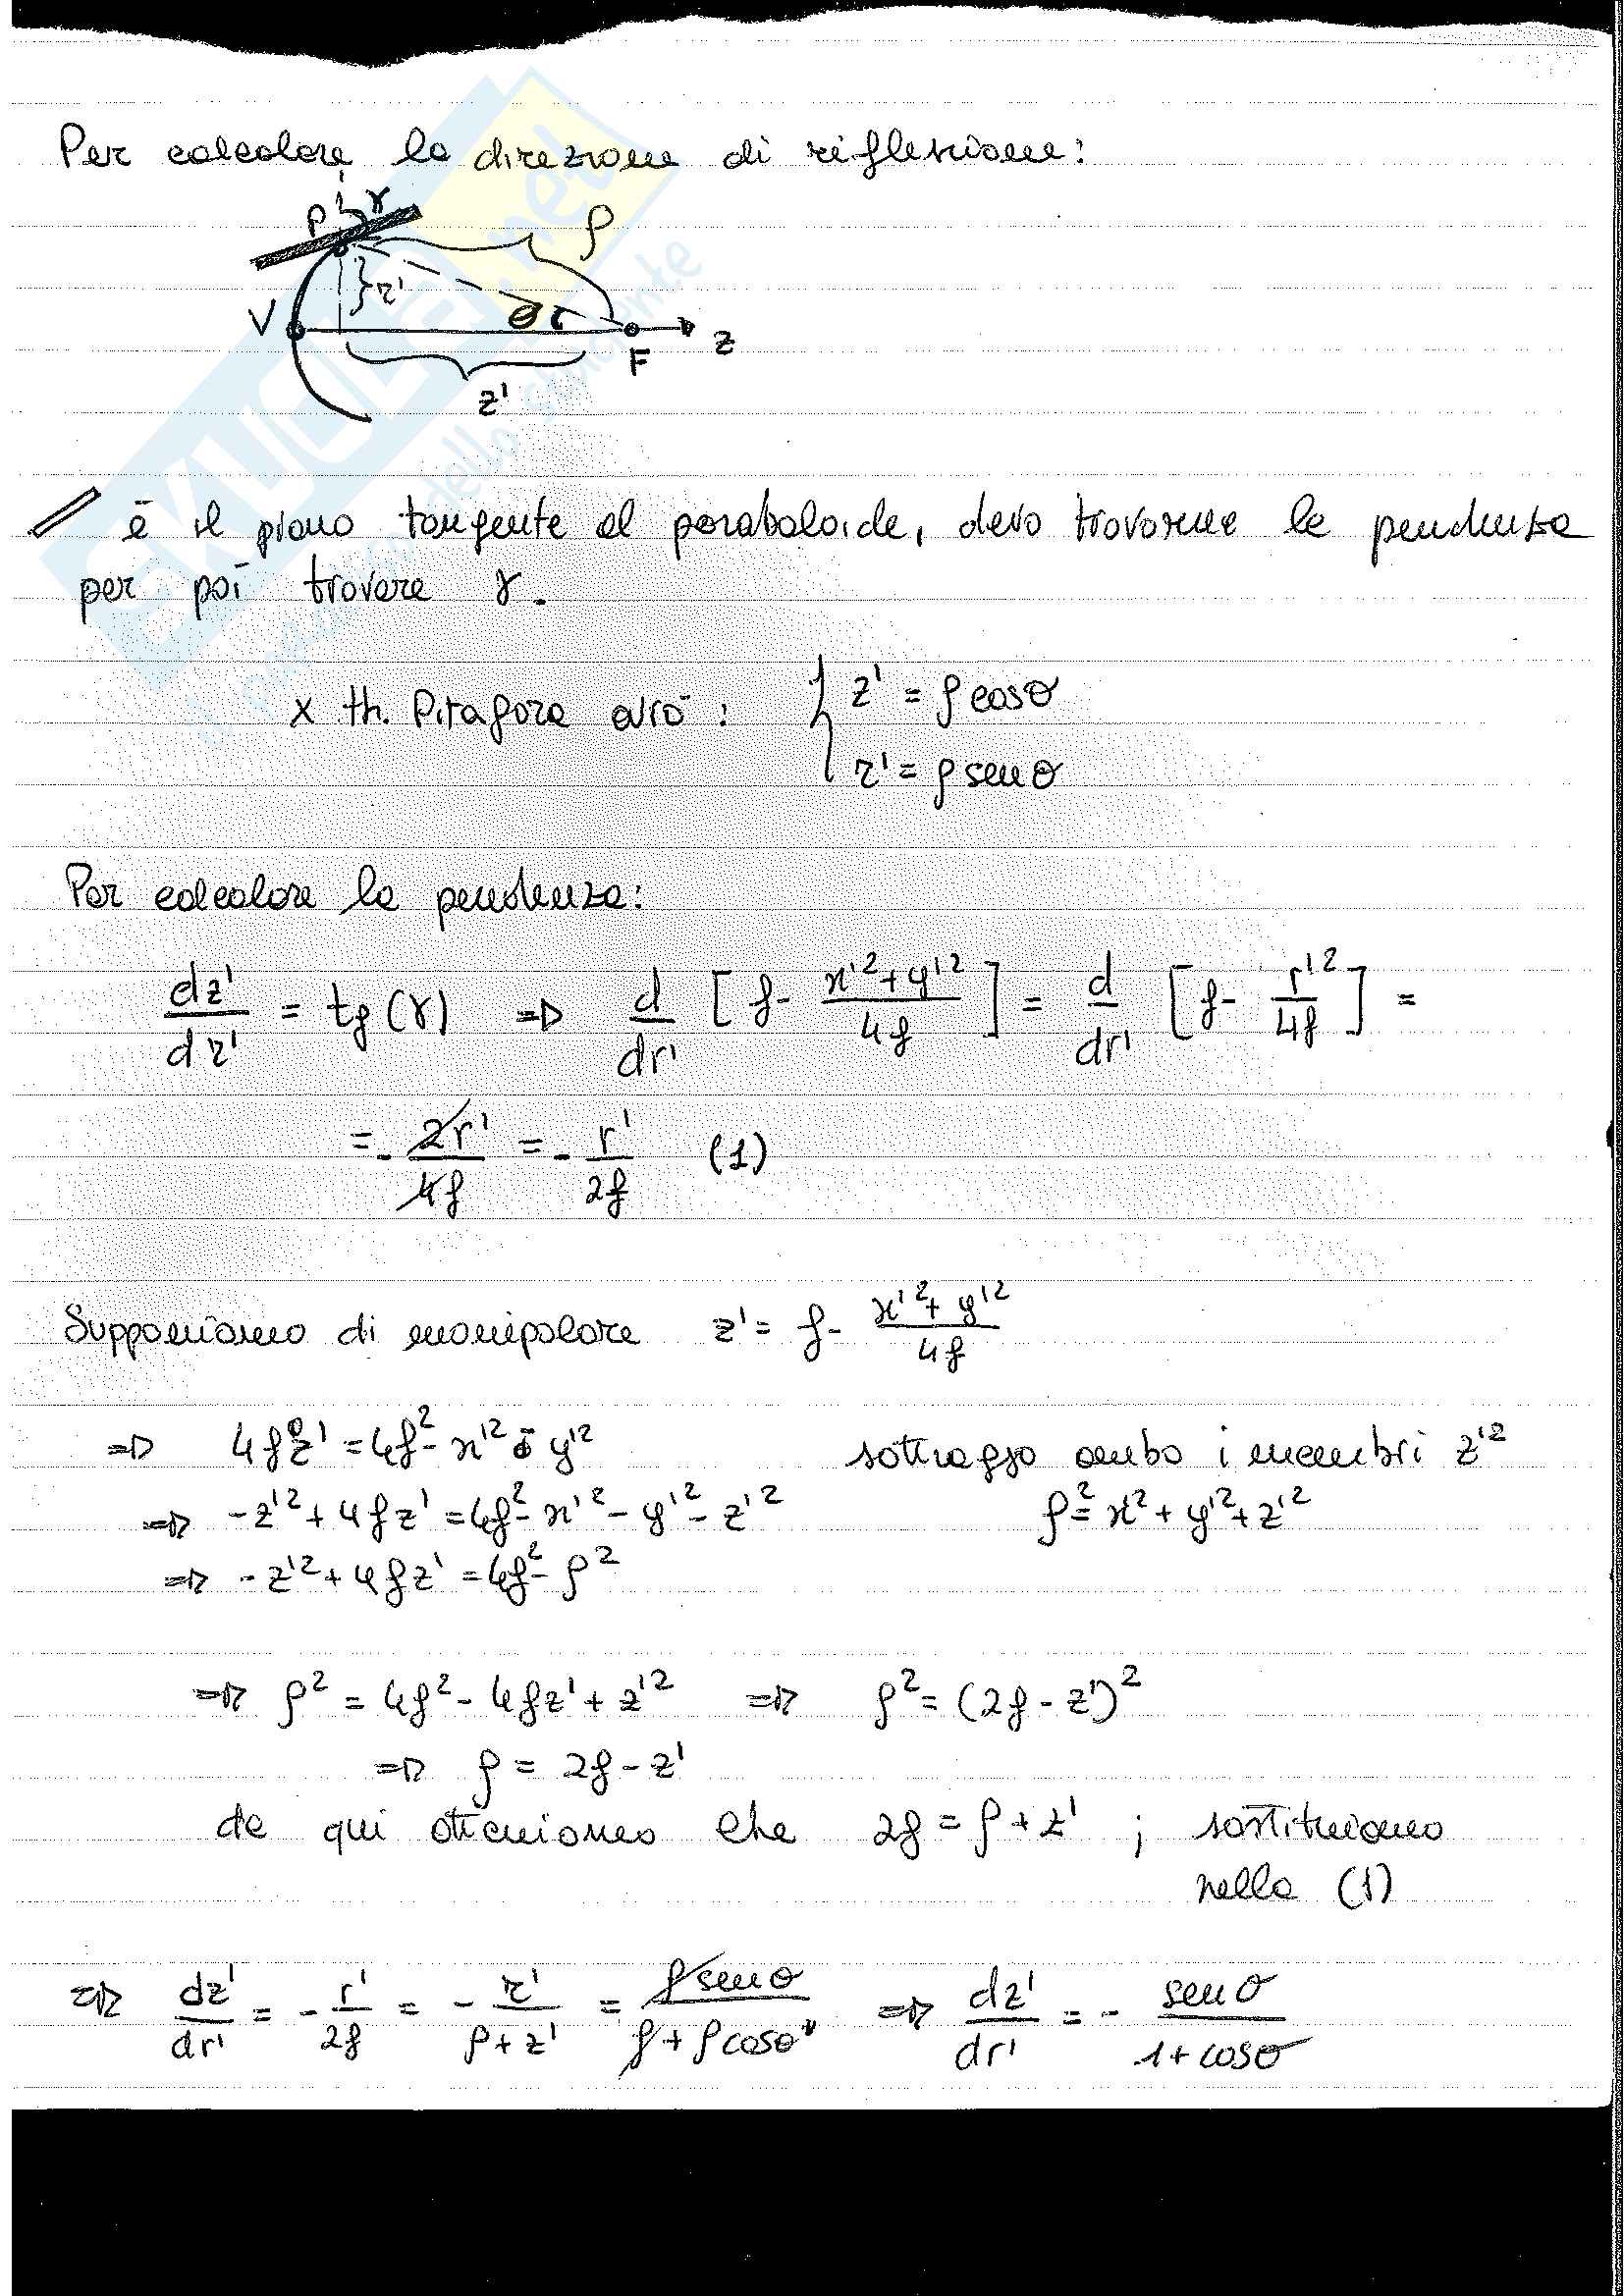 Per calcolare la direzione di riflessione:
P γ ρ
r'
V θ F z
z'
è il piano tangente al paraboloide, devo trovarne la pendenza
per poi trovare γ.
x th. Pitagora avrò: { z' = ρ cosθ
r' = ρ senθ
Per calcolare la pendenza:
dz'/dr' = tg(γ) => d/dr' [f - (x'²+y'²)/4f] = d/dr' [f - r'²/4f] =
= - 2r'/4f = - r'/2f (1)
Supponiamo di manipolare z' = f - (x'²+y'²)/4f
=> 4fz' = 4f² - x'² - y'² sottraggo ambo i membri z'²
=> -z'² + 4fz' = 4f² - x'² - y'² - z'² ρ² = x² + y'² + z'²
=> -z'² + 4fz' = 4f² - ρ²
=> ρ² = 4f² - 4fz' + z'² => ρ² = (2f - z')²
=> ρ = 2f - z'
da qui otteniamo che 2f = ρ + z' ; sostituiamo
nella (1)
=> dz'/dr' = - r'/2f = - r'/(ρ + z') = ρ senθ/(ρ + ρ cosθ) => dz'/dr' = - senθ/(1 + cosθ)
SKUOLA.net